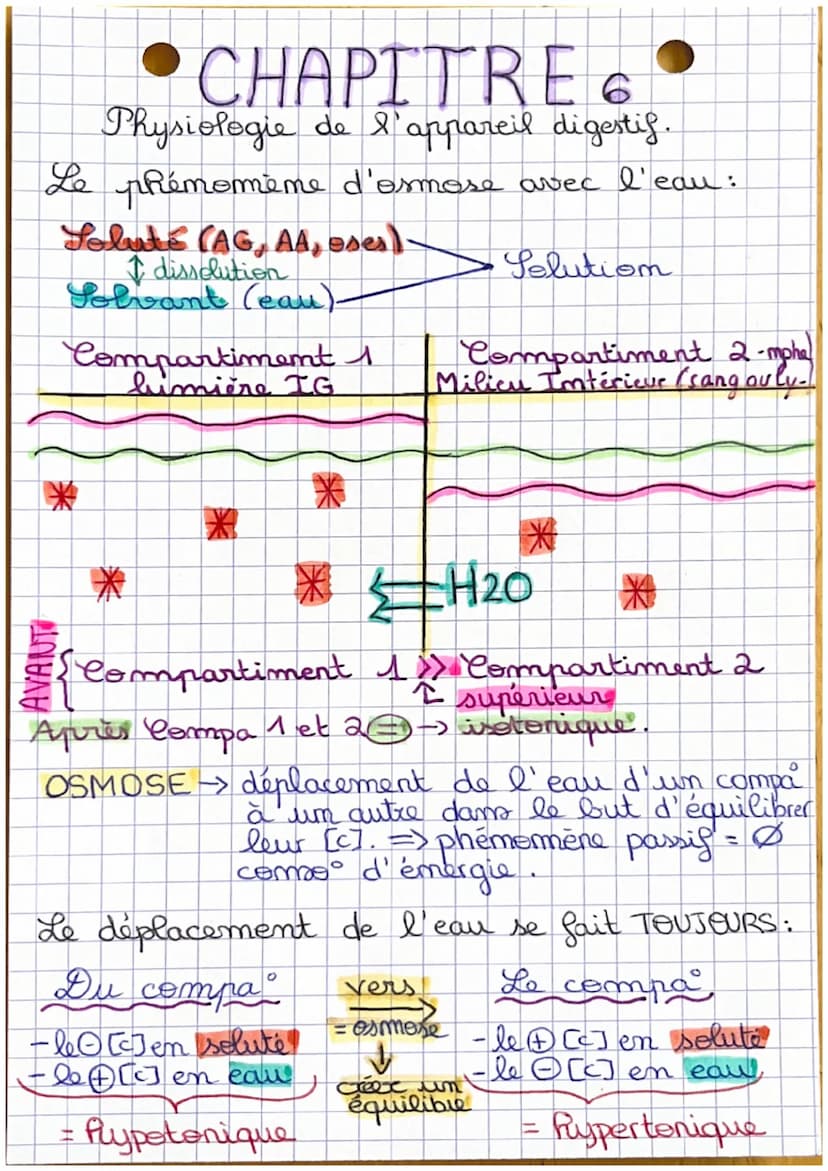 CHAPITRE 6
Physiologie de l'appareil digestif.
Le phénomène d'osmose avec l'eau :
Soluté (AG, AA, oses)
↕ dissolution
Solvant (eau)
Solution
Compartiment 1
lumière IG
Compartiment 2 -mphe)
Milieu Intérieur (sang ou ly-
H2O
AVANT { Compartiment 1 >> Compartiment 2
↑ supérieur
Après Compa 1 et 2 = → isotonique.
OSMOSE → déplacement de l'eau d'un compa°
à un autre dans le but d'équilibrer
leur [c]. => phénomène passif = Ø
conso° d'énergie.
Le déplacement de l'eau se fait TOUJOURS :
Du compa°
- le ⊖ [c] en soluté
- le ⊕ [c] en eau
= hypotonique
vers
→
= osmose
↓
créer un
équilibre
Le compa°
- le ⊕ [c] en soluté
- le ⊖ [c] en eau
= hypertonique